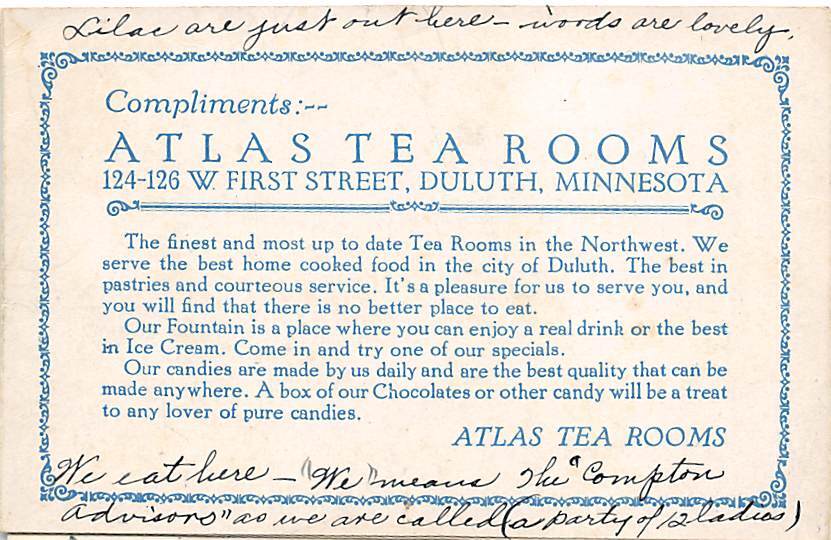 Lilac are just out here - woods are lovely.
Compliments:--
ATLAS TEA ROOMS
124-126 W. FIRST STREET, DULUTH, MINNESOTA
The finest and most up to date Tea Rooms in the Northwest. We
serve the best home cooked food in the city of Duluth. The best in
pastries and courteous service. It's a pleasure for us to serve you, and
you will find that there is no better place to eat.
Our Fountain is a place where you can enjoy a real drink or the best
in Ice Cream. Come in and try one of our specials.
Our candies are made by us daily and are the best quality that can be
made anywhere. A box of our Chocolates or other candy will be a treat
to any lover of pure candies.
ATLAS TEA ROOMS
We eat here - "We" means the "Compton
Advisors" as we are called (a party of 12 ladies)